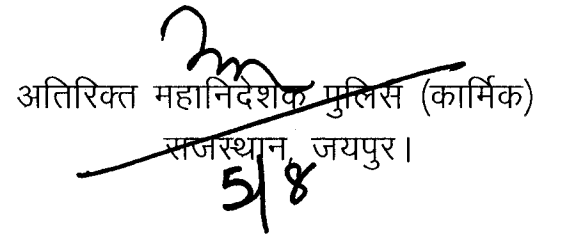 अतिरिक्त महानिदेशक पुलिस (कार्मिक)
राजस्थान, जयपुर।
5/8